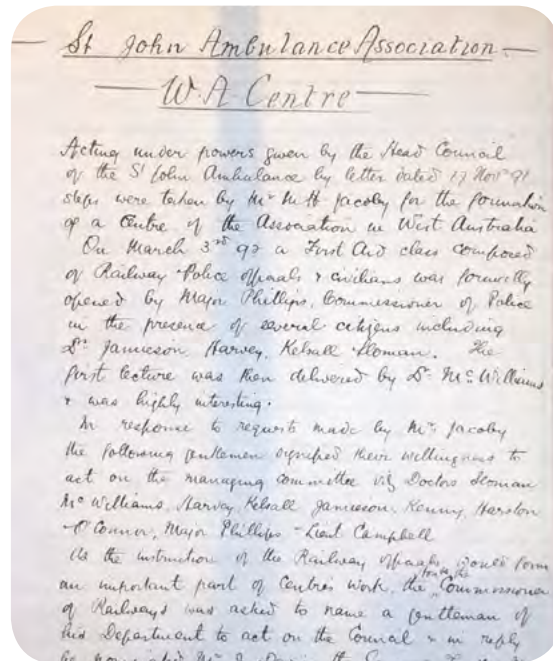 — St John Ambulance Association —
— W.A Centre —
Acting under powers given by the Head Council
of the St John Ambulance by letter dated 17 Novr 91
steps were taken by Mr M H Jacoby for the formation
of a Centre of the Association in West Australia
On March 3rd 92 a First Aid class composed
of Railway Police officials & civilians was formally
opened by Major Phillips, Commissioner of Police
in the presence of several citizens including
Drs Jamieson, Harvey, Kelsall Hloman. The
first lecture was then delivered by Dr McWilliams
& was highly interesting.
In response to requests made by Mr Jacoby
the following gentlemen signified their willingness to
act on the managing committee viz Doctors Hloman
McWilliams, Harvey, Kelsall Jamieson, Kenny, Harston
O'Connor, Major Phillips Lieut Campbell
As the instruction of the Railway officials would form
an important part of Centres work, the Commissioner
of Railways was asked to name a gentleman of
his Department to act on the Council & in reply
he nominated Mr J. the